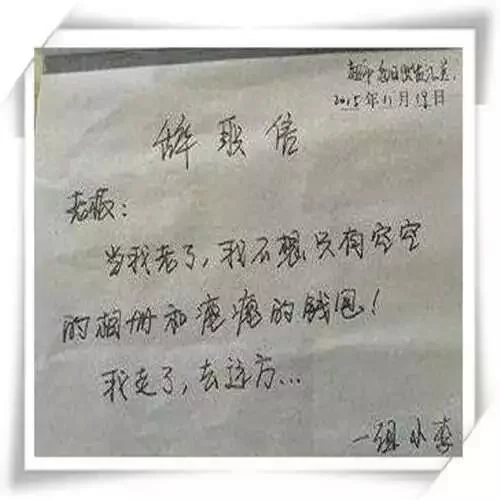 2015年11月19日
辞职信
老板：
当我老了,我不想只有空空
的相册和瘪瘪的钱包!
我走了,去远方...
一组 小李